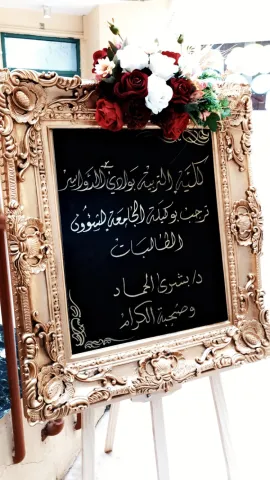 كلية التربية بوادي الدواسر
ترحب بوكيلة الجامعة لشؤون
الطالبات
د/ بشرى الحماد
وصحبة الكرام